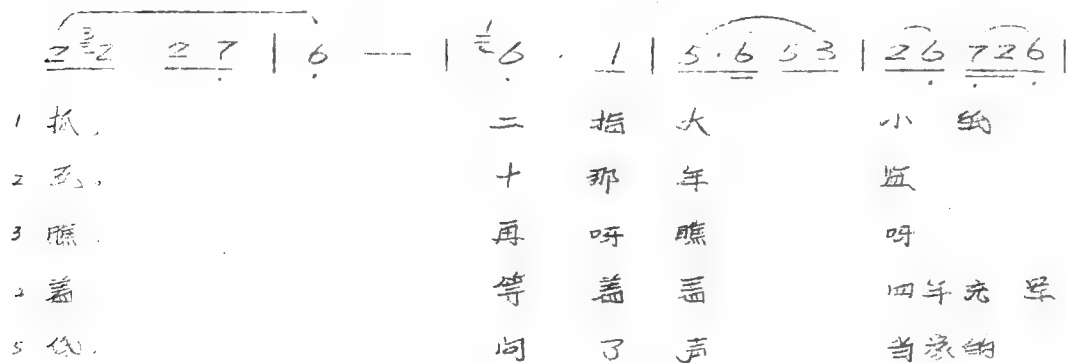 2 3/2 2 7 | 6 — | 1/2 6 · 1 | 5·6 5 3 | 2 6 7 2 6 |
1 抓， 二 指 大 小 纸
2 瓦。 十 那 年 监
3 瞧 再 呀 瞧 呀
2 盖 等 盖 盖 四年充军
5 低， 问 了 声 当家的